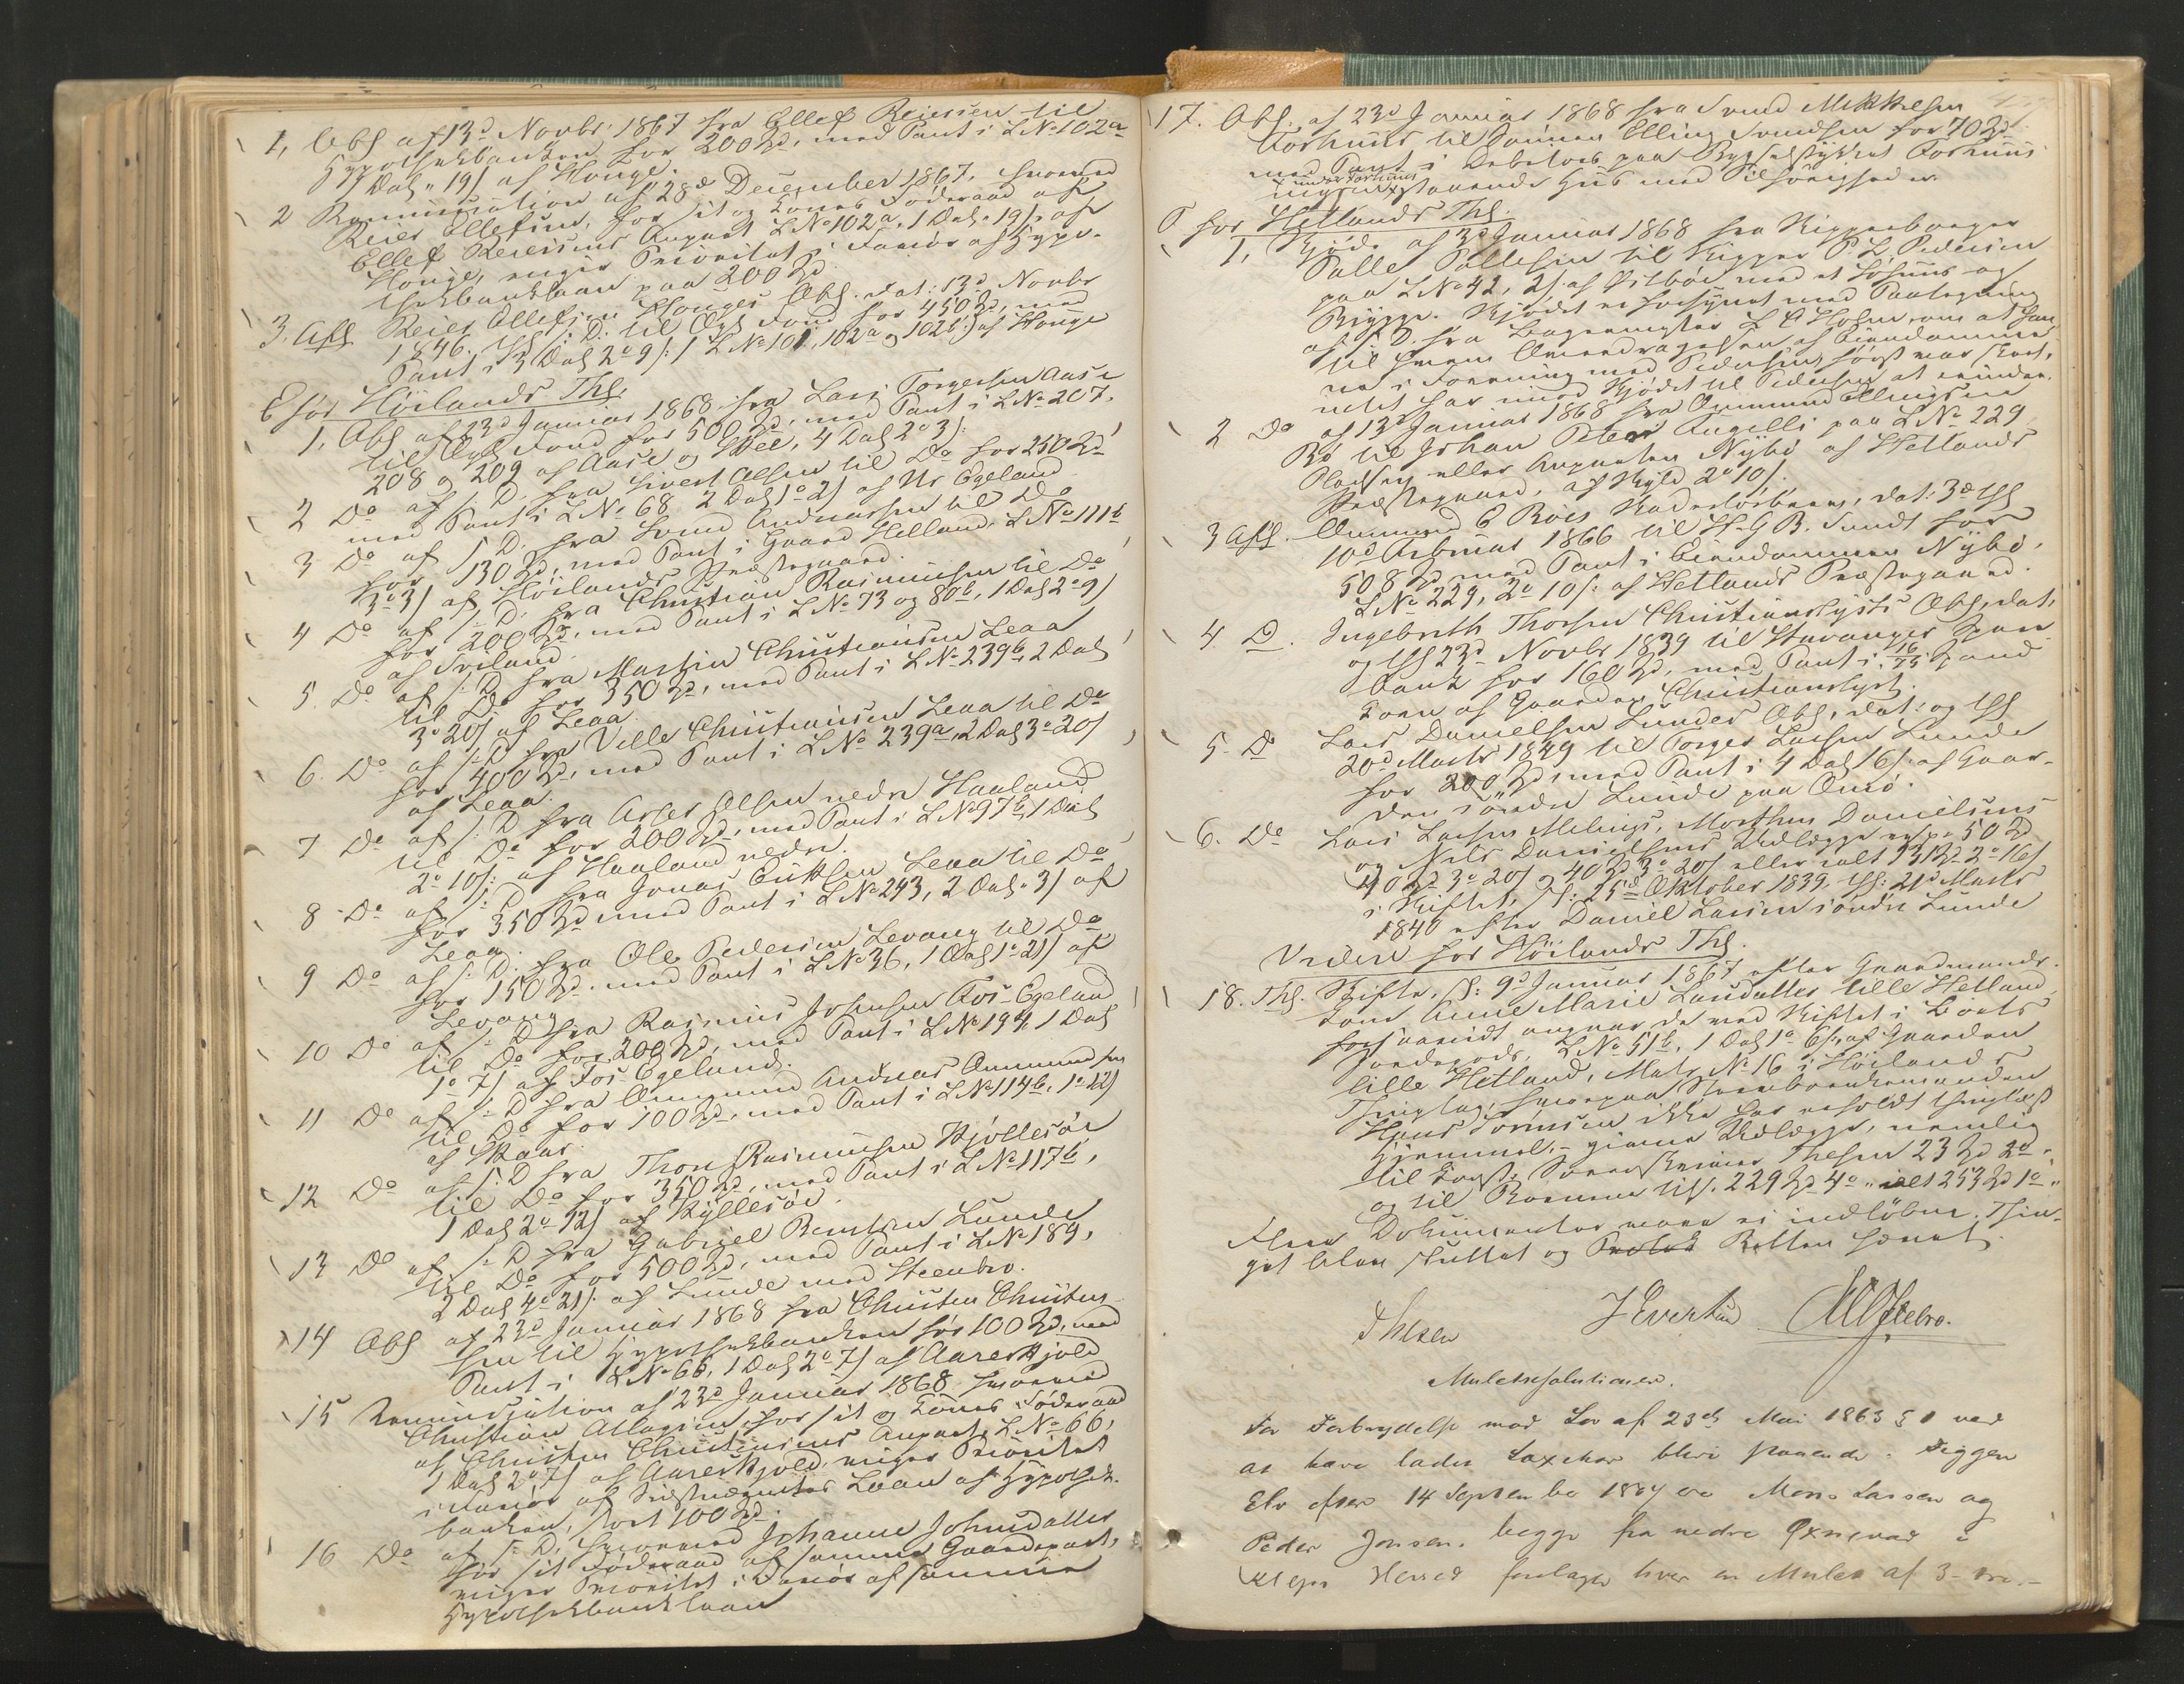 1, Obl af 13d Novbr: 1867 fra Ellef Reiersen til
Hypothekbanken for 200 Spd, med Pant i L No 102a
1 Dal " 19 s af Hauge.
2 Renunciation af 28de December 1867, hvorved
Reier Ellefsen, for sit og Kones Föderaad af
Ellef Reiersens Anpart L No 102a, 1 Dal " 19 s. af
Hauge, viger Prioritet i Faveur af Hypo-
thekbanklaan paa 200 Spd
3. Afl Reier Ellefsen Hauges Obl. dat: 13d Novbr
1846. tgl s: D. til Opl. Fond for 450 Spd, med
Pant i 3 Dal 2o 9 s: / L No 101, 102a og 102b :/ af Hauge
E for Höilands Thl.
1, Obl af 23d Januar 1868 fra Lars Torgersen Aase
til Opl. Fond for 500 Spd, med Pant i L No 207,
208 og 209 af Aase og , 4 Dal 2o 3 s:
2 Do af s: D. fra Sivert Olsen til Do for 250 Spd
med Pant i L No 68 2 Dal 1o 2 s af Us Egeland
3 Do af s. D. fra Svend Andreassen til Do
for 130 Spd, med Pant i Gaard Helland L No 111b
3o 3 s af Höilands Præstegaard.
4 Do af s: D. fra Christian Rasmussen til Do
for 200 Spd, med Pant i L No 73 og 80b, 1 Dal 2o 9 s
af Sviland.
5. Do af s: D. fra Martin Christiansen Leaa
til Do for 350 Spd, med Pant i L No 239b, 2 Dal
3o 20 s af Leaa.
6. Do af s: D fra Ville Christiansen Leaa til Do
for 400 Spd, med Pant i L No 239a, 2 Dal 3o 20 s
af Leaa.
7 Do af s: D fra Asser Olsen nedre Haaland
til Do for 200 Spd, med Pant i L No 97b, 1 Dal
2o 10 s: af Haaland nedre.
8 Do af s: D fra Jonas Eriksen Leaa til Do
for 350 Spd med Pant i L No 243, 2 Dal " 3 s af
Leaa.
9 Do af s: D. fra Ole Pedersen Levang til Do
for 150 Spd. med Pant i L No 36, 1 Dal 1o 21 s af
Levang.
10 Do af s: D fra Rasmus Johnsen Fos-Egeland
til Do for 200 Spd, med Pant i L No 194, 1 Dal
1o 7 s af Fos-Egeland.
11 Do af s: D fra Ommund Andreas Ommundsen
til Do for 100 Spd, med Pant i L No 114b, 1o 12 s
af Skaar.
12 Do af s: D fra Thore Rasmussen Kjöllesöe
til Do for 350 Spd, med Pant i L No 117b,
1 Dal 2o 12 s af Kyllesöe.
13 Do af s: D fra Gabriel Bentsen Lunde
til Do for 500 Spd, med Pant i L No 189,
2 Dal 4o 21 s: af Lunde med Steenbro.
14 Obl af 23d Januar 1868 fra Christen Christen
sen til Hypothekbanken for 100 Spd, med
Pant i L No 66, 1 Dal 2o 7 s af Aareskjold
15 Renunciation af 23d Januar 1868 hvorved
Christian Atlagsen, for sit og Kones Föderaad
af Christen Christensens Anpart, L No 66,
1 Dal 2o 7 s af Aareskjold, viger Prioritet
i Faveur af Sidstnævntes Laan af Hypothek-
banken, stort 100 Spd.
16 Do af s: D. hvorved Johanne Johnsdatter
for sit Föderaad af samme Gaardepart,
viger Prioritet i Faveur af samme
Hypothekbanklaan
17. Obl. af 23d Januar 1868 fra Svend Mikkelsen
Forhuus til Elling Svendsen for 70 Spd
med Pant i Debitors paa Bygselstykket Forhuus
x under Forhuus
x staaende Huus med Tilhörigheder
F for Hetlands Thl.
1, Skjöde af 3d Januar 1868 fra Skipperborger
Palle Pallesen til Skipper P. L. Pedersen
paa L No 42, 2 s: af med et Söhuus og
Brygge. Skjödet er forsynet med Paategning
af s: D. fra Lagermester L A Holm om at han
til Omordragelsen af Eiendomme
ne i Forening med Pedersen först var skeet,
intet har imod Skjödet til Pedersen at erindre.
2 Do af 13d Januar 1868 fra Ommund Ellingsen
Bö til Johan Peter Angelli paa L No 229
Pladsen eller Anparten Nybö af Hetlands
Præstegaard, af Skyld 2o 10 s.
3 Afl. Ommund E Böes , dat. 3de tgl
10d Februar 1866 til H. G B. Sundt for
508 Spd med Pant i Eiendommen Nybö,
L No 229, 2o 10 s: af Hetlands Præstegaard.
4. D. Ingebreth Thorsen Christianslysts Obl, dat.
og tgl 23d Novbr 1839 til Stavanger Spare
bank for 160 Spd, med Pant i 16/25 Spand
Korn af Gaarden Christianslyst.
5. Do Lars Danielsen Lundes Obl, dat: og tgl
20d Marts 1849 til Torger Larsen Lunde
for 200 Spd med Pant i 4 Dal 16 s: af Gaar-
den söndre Lunde paa Ombö.
6. Do Lars Larsen Melings, Morthen Danielsens
og Nils Danielsens Udlægge resp: 50 Spd
40 Spd 3o 20 s og 40 Spd 3o 20 s eller ialt 131 Spd 2o 16 s
i Skiftet, sl: 25d Oktober 1839, tgl: 21d Marts
1840 efter Daniel Larsen söndre Lunde
Videre for Höilands Thl.
18. Thl. Skifte, sl: 9d Januar 1867 efter Gaardmands-
kone Anne Marie Larsdatter lille Hetland
forsaavidt angaar de ved Skiftet i Boets
Jordegods, L No 51b, 1 Dal 1o 6 s: af Gaarden
lille Hetland, Matr. No 16 i Höilands
Thinglag, hvorpaa Skræborenkemanden
Hans Sörensen ikke har erholdt thinglæst
Hjemmel, gjorte Udlægge, nemlig
til Thesen 23 Spd 2o "
og til 229 Spd 4o " ialt 253 Spd 1o "
Flere Dokumenter vare ei indlöbne. Thin-
get blev sluttet og Protok Retten hævet.
Thesen J Evertsen
Mulctresolutioner.
For Forbrydelse mod Lov af 23de Mai 1863 § 1 ved
at have ladet Laxekar blive staaende i Figgen
Elv efter 14 September 1867 ere Mons Larsen og
Peder Jonsen. begge fra nedre Øxnevad i
Klep Herred forelagt hver en Mulct af 3 – tre. –